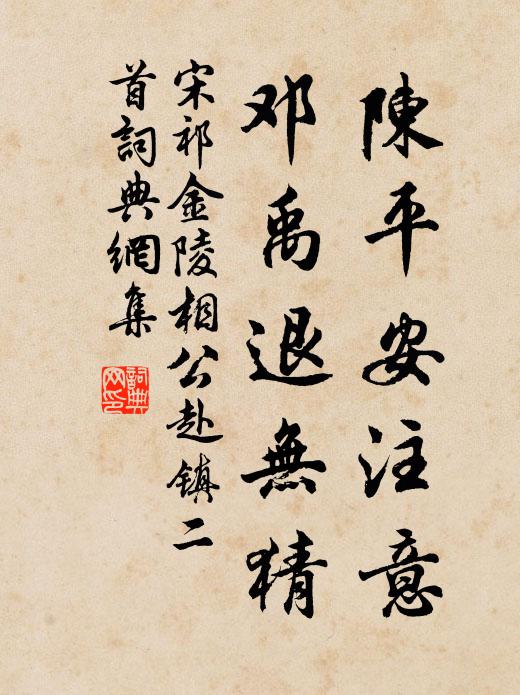 陳平安注意
邓禹退無猜
宋祁金陵相公赴鎮二
首詞典網集
詞典
网印